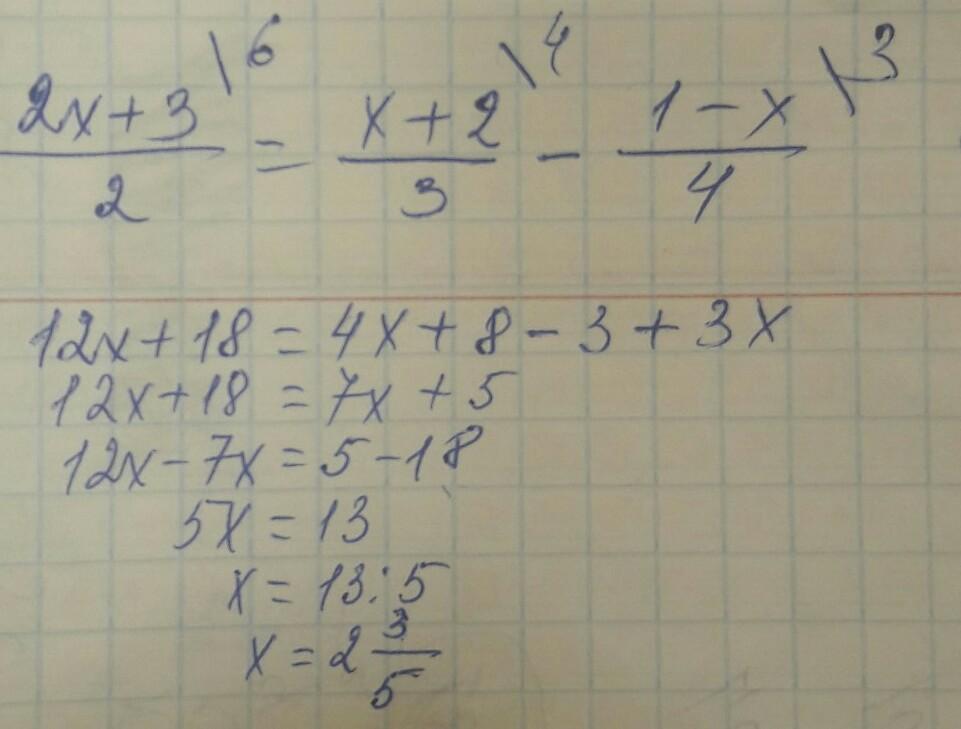 \frac{2x+3}{2}^{\6} = \frac{x+2}{3}^{\4} - \frac{1-x}{4}^{\3}
12x+18 = 4x+8-3+3x
12x+18 = 7x+5
12x-7x=5-18
5x=13
x=13:5
x=2\frac{3}{5}